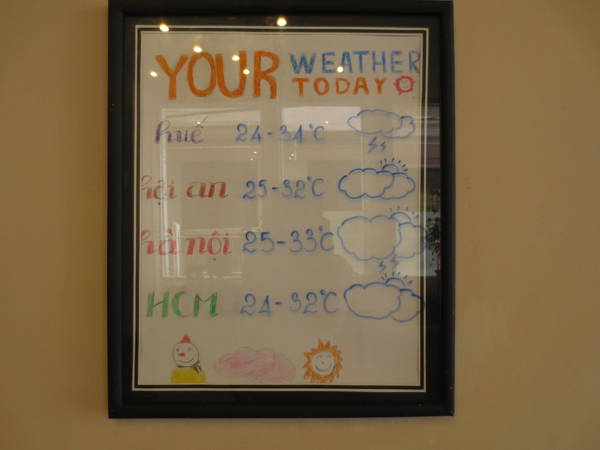 YOUR WEATHER TODAY
huế 24-34°C
hội an 25-32°C
hà nội 25-33°C
HCM 24-32°C